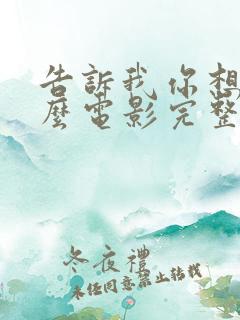 告訴我你想
麼電影完整
冬夜禮
未經同意禁止轉載